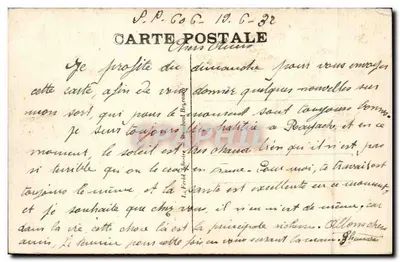 S.P. 606 - 19-6-32
CARTE POSTALE
Chers Amis
Je profite du dimanche pour vous envoyer
cette carte, afin de vous donner quelques nouvelles sur
mon sort, qui pour le moment sont toujours bonnes
je suis toujours à et en ce
moment, le soleil est très chaud bien qu'il n'est pas
si terrible qu'on le croit en france. Pour moi, le travail est
toujours le même et la santé est excellente en ce moment,
et je souhaite que chez vous, il n'en n'est de même, car
dans la vie, cette chose là est la principale richesse.
amis, je termine pour cette fois en vous serrant la main.